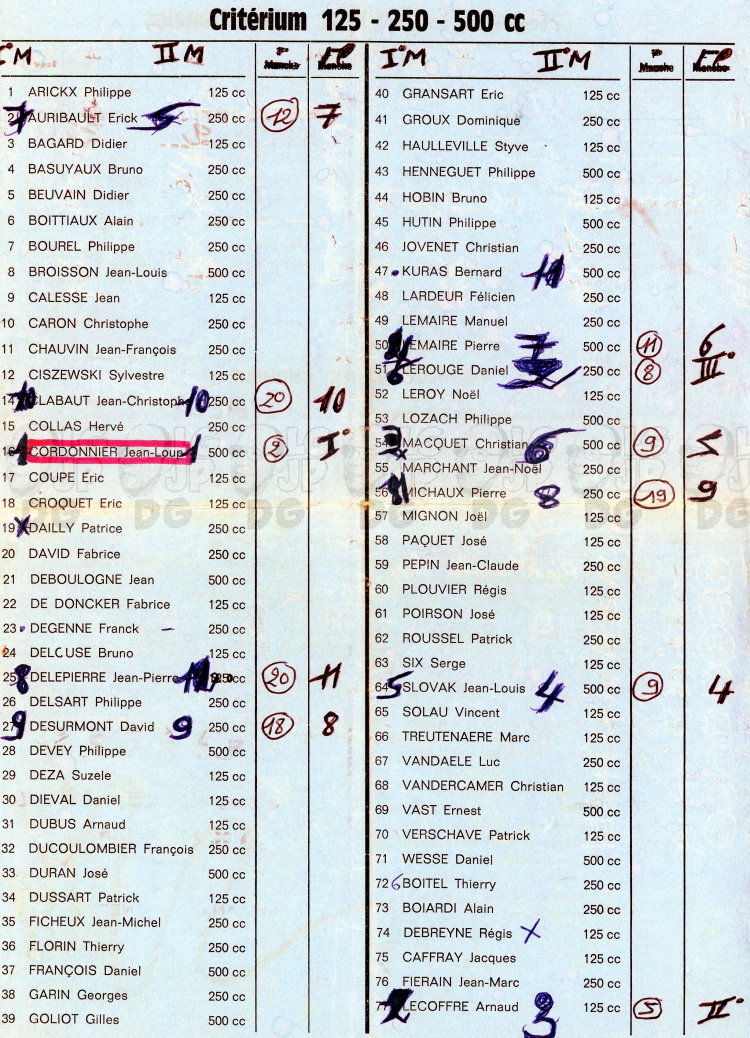 Critérium 125 - 250 - 500 cc
I° M II M Manche
1 ARICKX Philippe 125 cc
2 AURIBAULT Erick 5 250 cc 12 7
3 BAGARD Didier 125 cc
4 BASUYAUX Bruno 250 cc
5 BEUVAIN Didier 250 cc
6 BOITTIAUX Alain 250 cc
7 BOUREL Philippe 250 cc
8 BROISSON Jean-Louis 500 cc
9 CALESSE Jean 125 cc
10 CARON Christophe 250 cc
11 CHAUVIN Jean-François 250 cc
12 CISZEWSKI Sylvestre 125 cc
14 CLABAUT Jean-Christophe 10 250 cc 20 10
15 COLLAS Hervé 250 cc
16 1 CORDONNIER Jean-Loup 1 500 cc 2 I°
17 COUPE Eric 125 cc
18 CROQUET Eric 125 cc
19 X DAILLY Patrice 250 cc
20 DAVID Fabrice 250 cc
21 DEBOULOGNE Jean 500 cc
22 DE DONCKER Fabrice 125 cc
23 DEGENNE Franck – 250 cc
24 DELCUSE Bruno 125 cc
25 8 DELEPIERRE Jean-Pierre 20 11
26 DELSART Philippe 250 cc
27 9 DESURMONT David 9 250 cc 18 8
28 DEVEY Philippe 500 cc
29 DEZA Suzele 125 cc
30 DIEVAL Daniel 125 cc
31 DUBUS Arnaud 125 cc
32 DUCOULOMBIER François 250 cc
33 DURAN José 500 cc
34 DUSSART Patrick 125 cc
35 FICHEUX Jean-Michel 250 cc
36 FLORIN Thierry 250 cc
37 FRANÇOIS Daniel 500 cc
38 GARIN Georges 250 cc
39 GOLIOT Gilles 500 cc
I° M II° M Manche
40 GRANSART Eric 125 cc
41 GROUX Dominique 250 cc
42 HAULLEVILLE Styve 125 cc
43 HENNEGUET Philippe 500 cc
44 HOBIN Bruno 125 cc
45 HUTIN Philippe 500 cc
46 JOVENET Christian 250 cc
47 KURAS Bernard 11 500 cc
48 LARDEUR Félicien 250 cc
49 LEMAIRE Manuel 250 cc
50 LEMAIRE Pierre 7 500 cc 11 6
51 6 LEROUGE Daniel 250 cc 8 III°
52 LEROY Noël 125 cc
53 LOZACH Philippe 500 cc
54 MACQUET Christian 6 500 cc 9 5
55 MARCHANT Jean-Noël 250 cc
56 MICHAUX Pierre 8 250 cc 19 9
57 MIGNON Joël 125 cc
58 PAQUET José 125 cc
59 PEPIN Jean-Claude 250 cc
60 PLOUVIER Régis 125 cc
61 POIRSON José 125 cc
62 ROUSSEL Patrick 250 cc
63 SIX Serge 125 cc
64 5 SLOVAK Jean-Louis 4 500 cc 9 4
65 SOLAU Vincent 125 cc
66 TREUTENAERE Marc 125 cc
67 VANDAELE Luc 250 cc
68 VANDERCAMER Christian 125 cc
69 VAST Ernest 500 cc
70 VERSCHAVE Patrick 125 cc
71 WESSE Daniel 500 cc
72 6 BOITEL Thierry 250 cc
73 BOIARDI Alain 250 cc
74 DEBREYNE Régis X 125 cc
75 CAFFRAY Jacques 125 cc
76 FIERAIN Jean-Marc 250 cc
77 2 LECOFFRE Arnaud 3 125 cc 5 II°